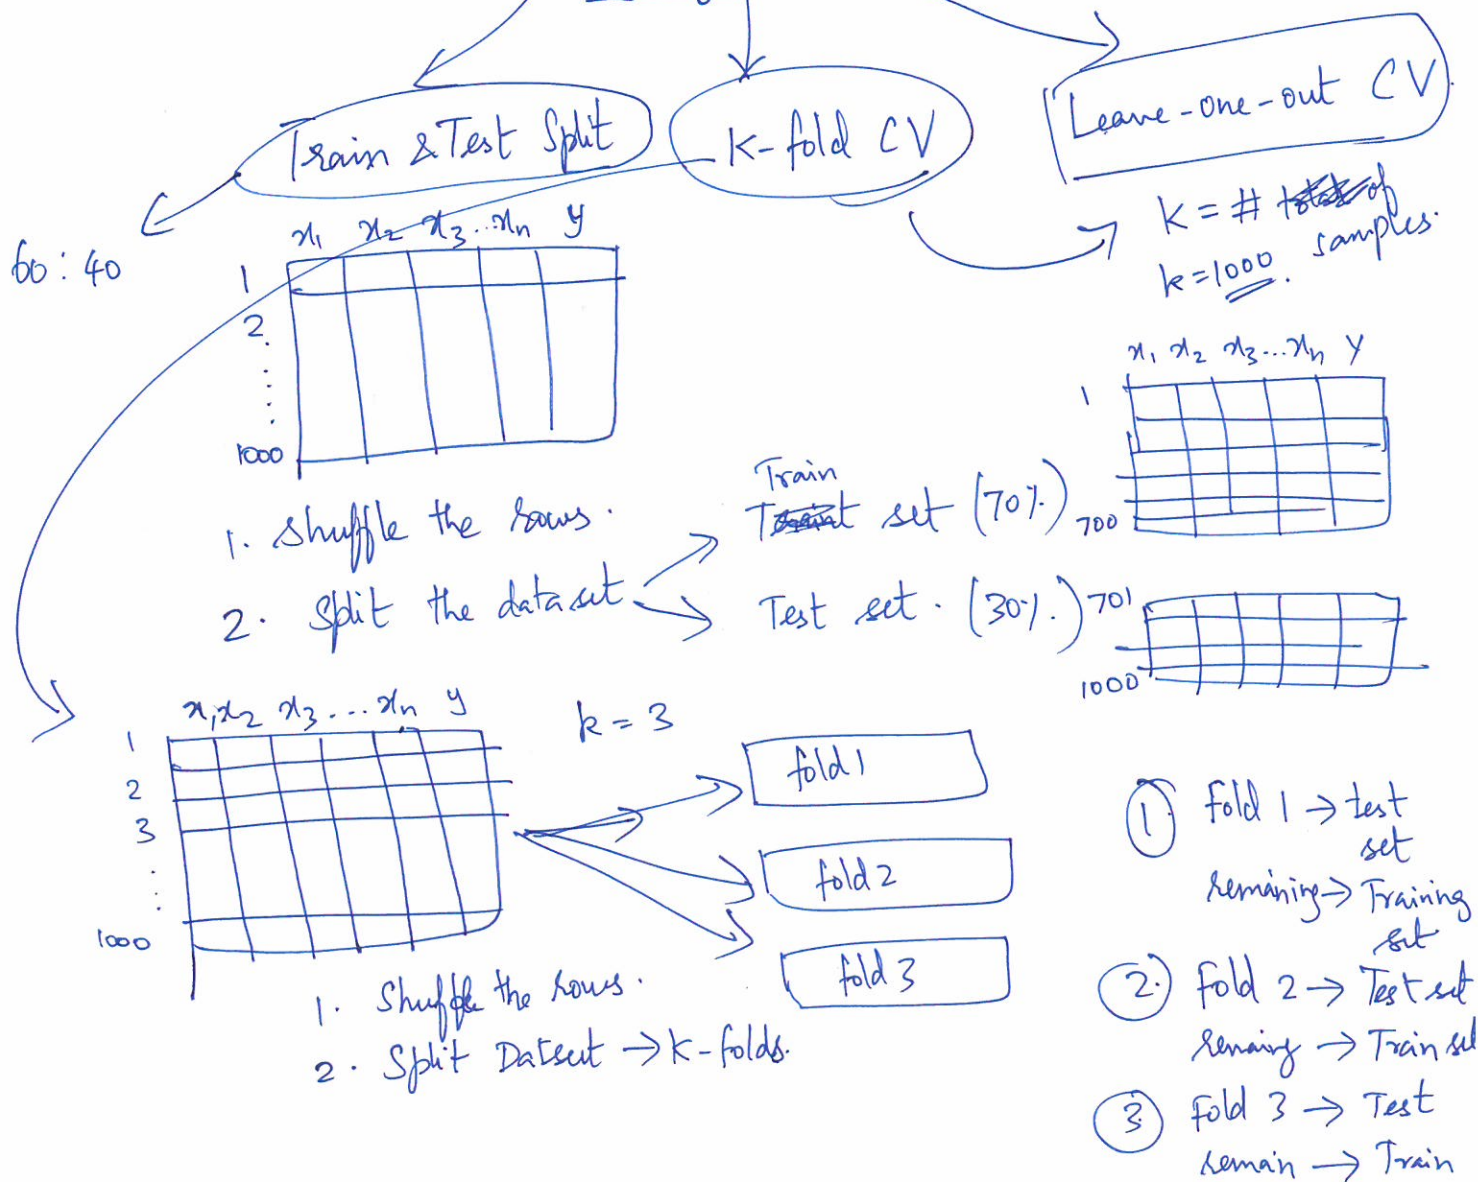 Train & Test Split
K-fold CV
Leave-one-out CV
K = # of
samples.
k=1000.
60:40
x1 x2 x3...xn y
1
2
1000
x1 x2 x3...xn y
1
700
1. Shuffle the rows.
2. Split the dataset
Train
set (70%)
Test set. (30%.)
701
1000
x1 x2 x3 ... xn y
1
2
3
1000
k = 3
fold 1
fold 2
fold 3
1. Shuffle the rows.
2. Split Datset → K-folds.
1 Fold 1 → test
set
remaining → Training
set
2. Fold 2 → Test set
remaing → Train set
3 Fold 3 → Test
remain → Train